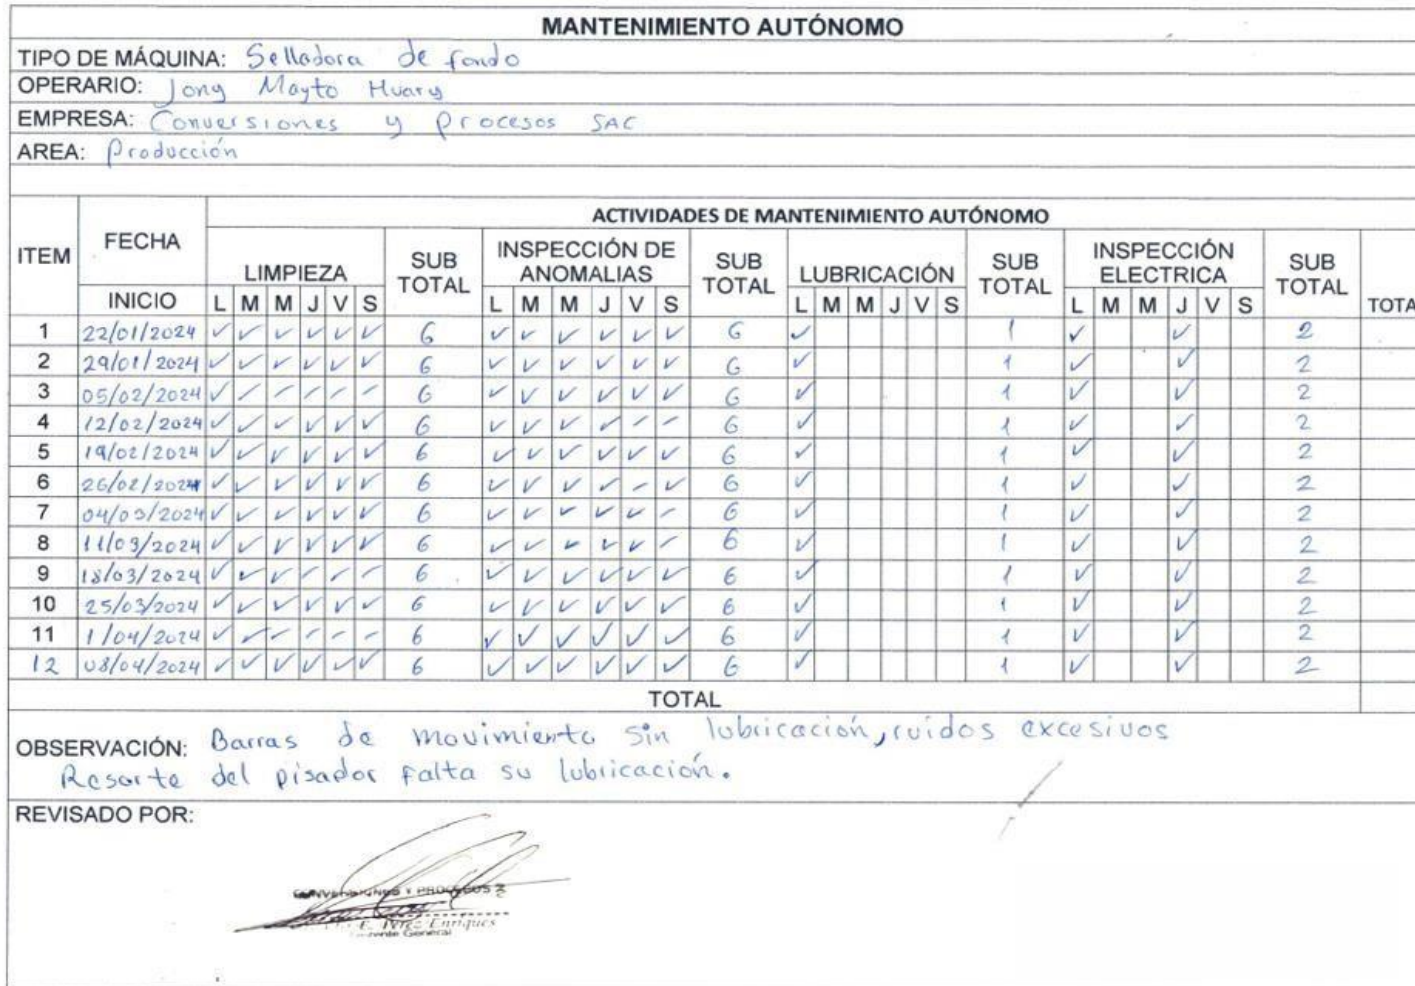 MANTENIMIENTO AUTÓNOMO
TIPO DE MÁQUINA: Selladora de fondo
OPERARIO: Jony Mayto Huary
EMPRESA: Conversiones y Procesos SAC
AREA: Producción
ACTIVIDADES DE MANTENIMIENTO AUTÓNOMO
ITEM FECHA LIMPIEZA SUB TOTAL INSPECCIÓN DE ANOMALIAS SUB TOTAL LUBRICACIÓN SUB TOTAL INSPECCIÓN ELECTRICA SUB TOTAL
INICIO L M M J V S L M M J V S L M M J V S L M M J V S TOTA
1 22/01/2024 ✓ ✓ ✓ ✓ ✓ ✓ 6 ✓ ✓ ✓ ✓ ✓ ✓ 6 ✓ 1 ✓ ✓ 2
2 29/01/2024 ✓ ✓ ✓ ✓ ✓ ✓ 6 ✓ ✓ ✓ ✓ ✓ ✓ 6 ✓ 1 ✓ ✓ 2
3 05/02/2024 ✓ ✓ ✓ ✓ ✓ ✓ 6 ✓ ✓ ✓ ✓ ✓ ✓ 6 ✓ 1 ✓ ✓ 2
4 12/02/2024 ✓ ✓ ✓ ✓ ✓ ✓ 6 ✓ ✓ ✓ ✓ ✓ ✓ 6 ✓ 1 ✓ ✓ 2
5 19/02/2024 ✓ ✓ ✓ ✓ ✓ ✓ 6 ✓ ✓ ✓ ✓ ✓ ✓ 6 ✓ 1 ✓ ✓ 2
6 26/02/2024 ✓ ✓ ✓ ✓ ✓ ✓ 6 ✓ ✓ ✓ ✓ ✓ ✓ 6 ✓ 1 ✓ ✓ 2
7 04/03/2024 ✓ ✓ ✓ ✓ ✓ ✓ 6 ✓ ✓ ✓ ✓ ✓ ✓ 6 ✓ 1 ✓ ✓ 2
8 11/03/2024 ✓ ✓ ✓ ✓ ✓ ✓ 6 ✓ ✓ ✓ ✓ ✓ ✓ 6 ✓ 1 ✓ ✓ 2
9 18/03/2024 ✓ ✓ ✓ ✓ ✓ ✓ 6 ✓ ✓ ✓ ✓ ✓ ✓ 6 ✓ 1 ✓ ✓ 2
10 25/03/2024 ✓ ✓ ✓ ✓ ✓ ✓ 6 ✓ ✓ ✓ ✓ ✓ ✓ 6 ✓ 1 ✓ ✓ 2
11 1/04/2024 ✓ ✓ ✓ ✓ ✓ ✓ 6 ✓ ✓ ✓ ✓ ✓ ✓ 6 ✓ 1 ✓ ✓ 2
12 08/04/2024 ✓ ✓ ✓ ✓ ✓ ✓ 6 ✓ ✓ ✓ ✓ ✓ ✓ 6 ✓ 1 ✓ ✓ 2
TOTAL
OBSERVACIÓN: Barras de movimiento sin lubricación, ruidos excesivos
Resorte del pisador falta su lubricación.
REVISADO POR:
CONVERSIONES Y PROCESOS
E. Perez Enriques
Gerente General